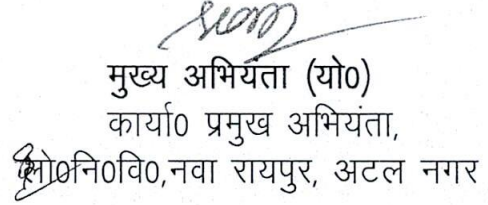 मुख्य अभियंता (यो0)
कार्या0 प्रमुख अभियंता,
लो0नि0वि0,नवा रायपुर, अटल नगर